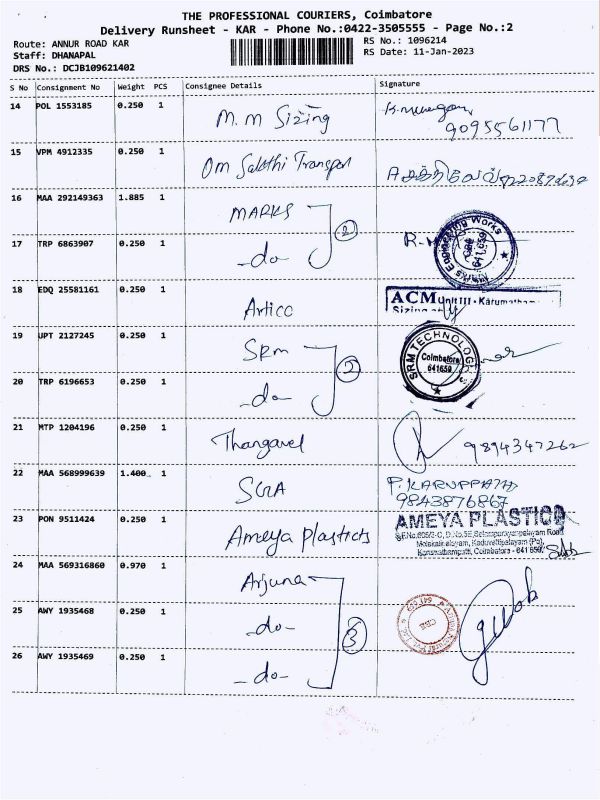 THE PROFESSIONAL COURIERS, Coimbatore
Delivery Runsheet - KAR - Phone No.:0422-3505555 - Page No.:2
Route: ANNUR ROAD KAR
RS No.: 1096214
Staff: DHANAPAL
RS Date: 11-Jan-2023
DRS No.: DCJB109621402
S No Consignment No Weight PCS Consignee Details Signature
14 POL 1553185 0.250 1 M.M Sizing
9095561177
15 VPM 4912335 0.250 1 Om Sakthi Transport
16 MAA 292149363 1.885 1 MARKS
2
17 TRP 6863907 0.250 1 -do-
Marks Engineering Works
CBE
641 659
18 EDQ 25581161 0.250 1 Articc
ACM Unit III - Karumatham
Sizing
19 UPT 2127245 0.250 1 SRM
2
SRM TECHNOLOG
Coimbatore
641659
20 TRP 6196653 0.250 1 -do-
21 MTP 1204196 0.250 1 Thangavel 9894347262
22 MAA 568999639 1.400 1 SGA P.KARUPPATHI
9843876867
23 PON 9511424 0.250 1 Ameya plastics
AMEYA PLASTICS
Coimbatore - 641 659.
24 MAA 569316860 0.970 1 Arjuna
25 AWY 1935468 0.250 1 -do-
3
CBE
641 659
26 AWY 1935469 0.250 1 -do-